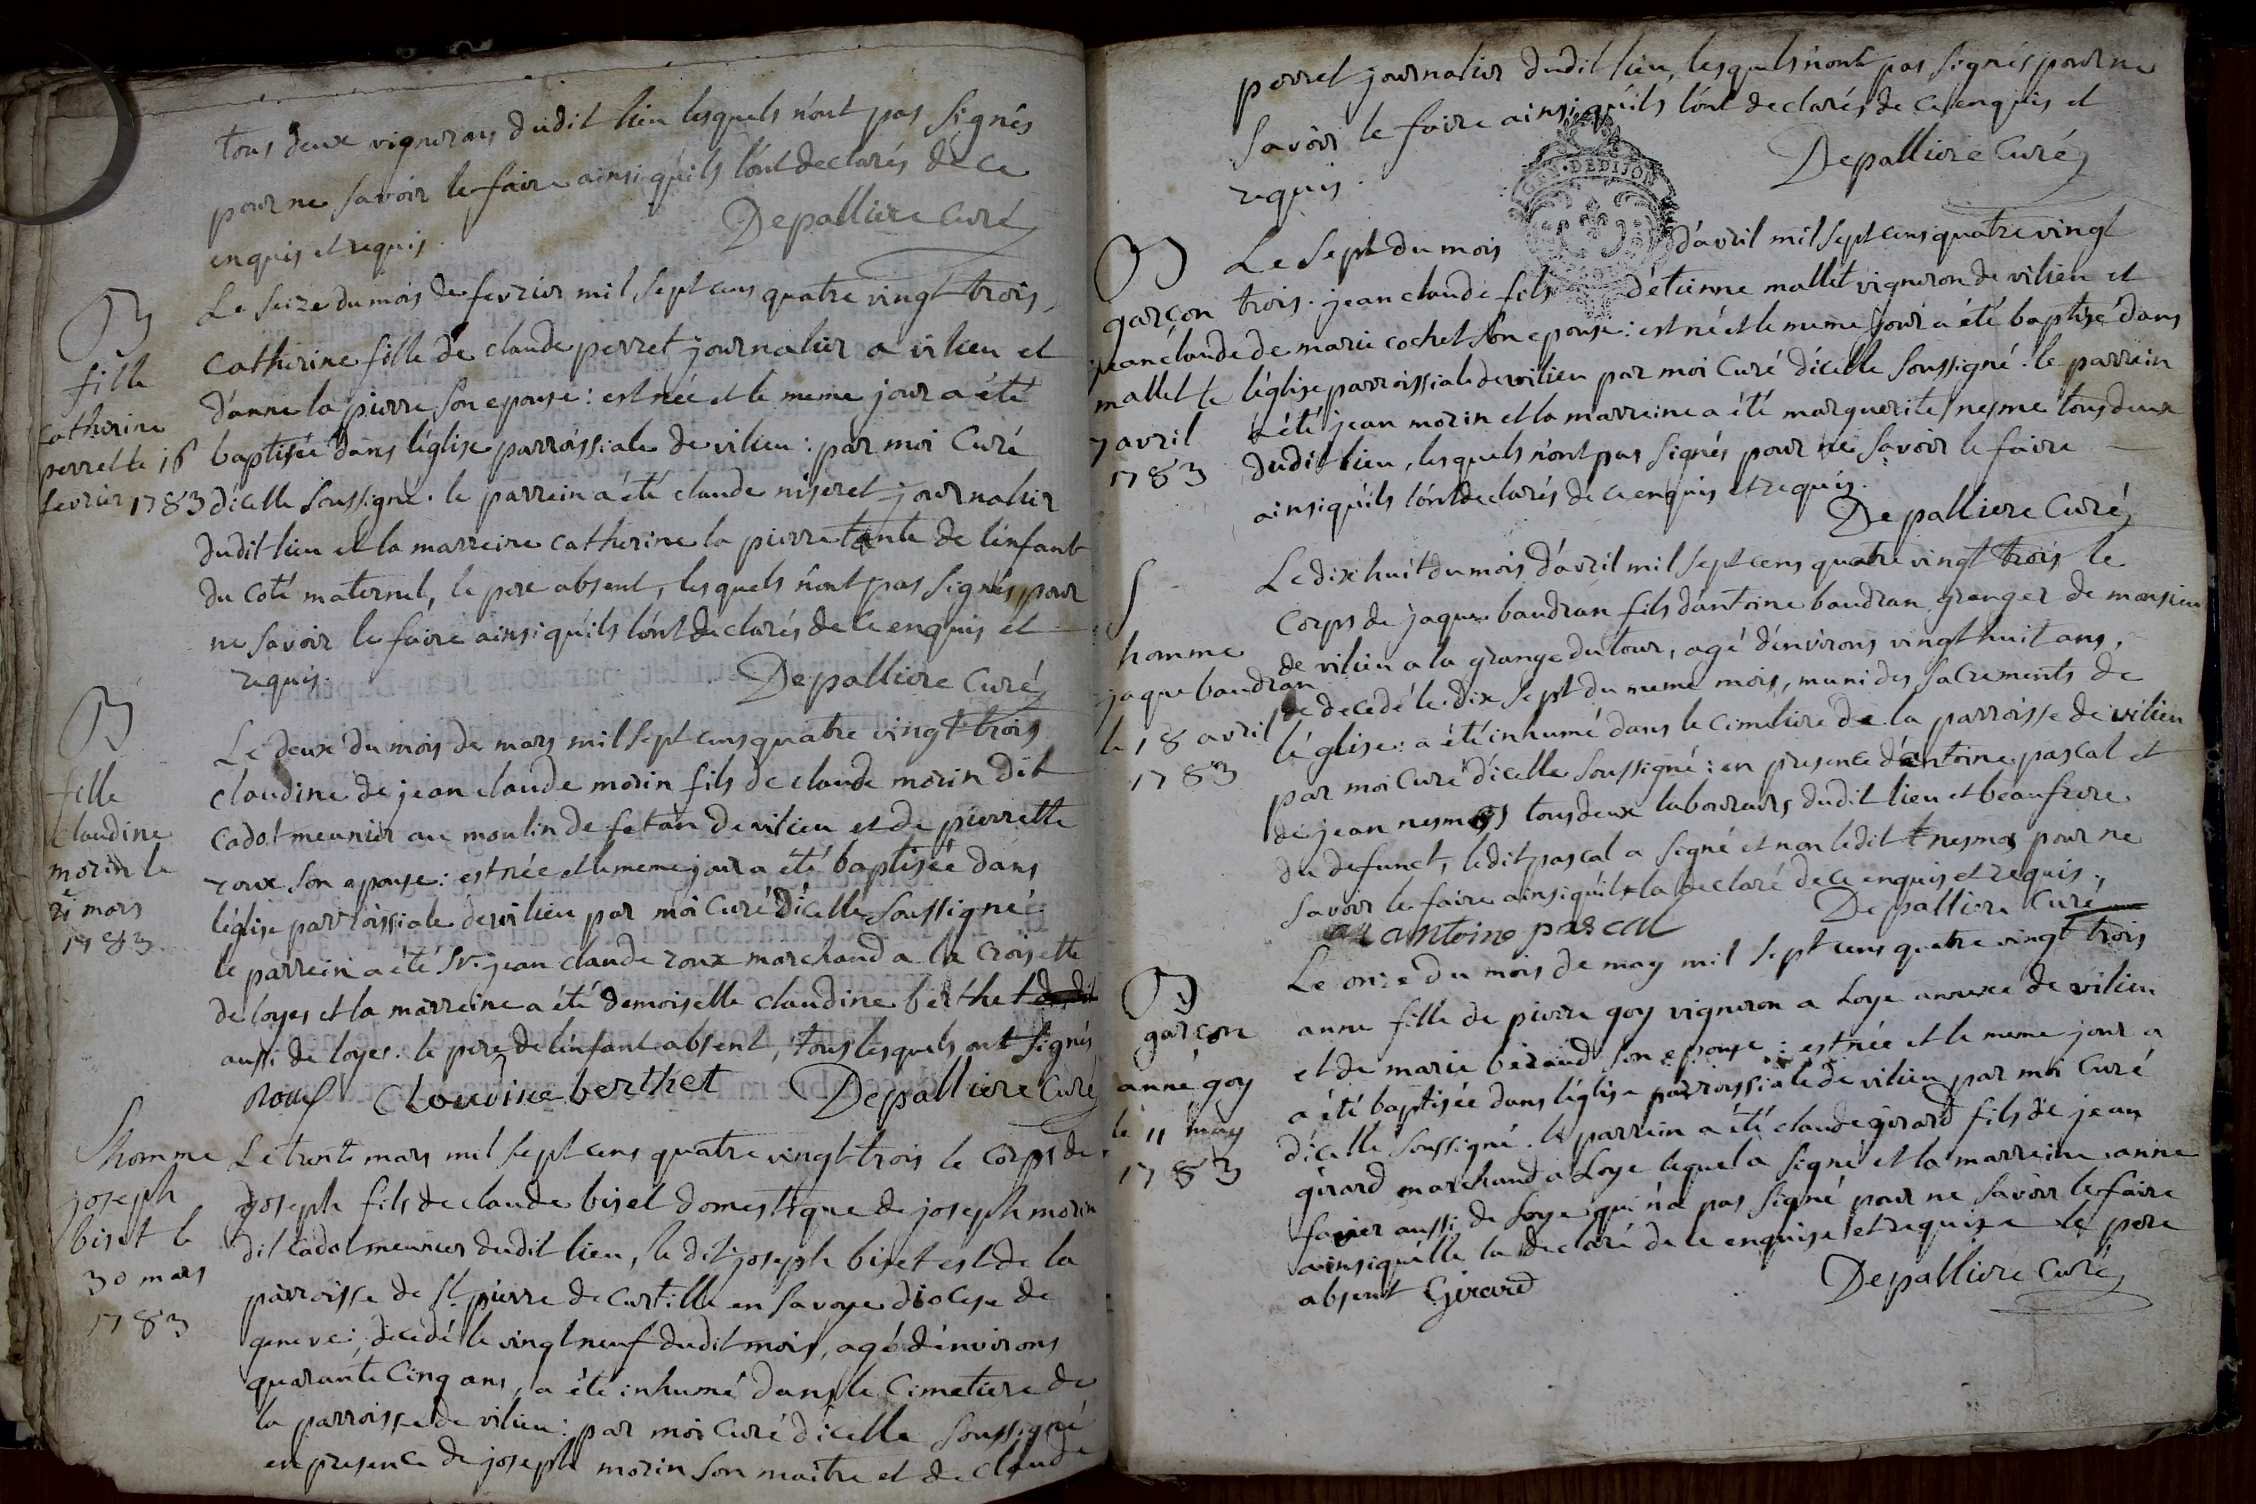 tous deux vignerons dudit lieu lesquels n'ont pas signés
pour ne savoir le faire ainsi qu'ils l'ont declarés de ce
enquis et requis.
Depalliere Curé
B
fille
catherine
perret le 16
fevrier 1783
Le seize du mois de fevrier mil sept cens quatre vingt trois,
catherine fille de claude perret journalier a vilieu et
d'anne la pierre son epouse : est née et le meme jour a été
baptisée dans l'église parroissiale de vilieu : par moi Curé
d'icelle soussigné. le parrein a été claude niseret journalier
dudit lieu et la marreine catherine la pierre tante de l'enfant
du coté maternel, le pere absent, lesquels n'ont pas signés pour
ne savoir le faire ainsi qu'ils l'ont declarés de ce enquis et
requis.
Depalliere Curé
B
fille
claudine
morin le
2 mars
1783
Le deux du mois de mars mil sept cens quatre vingt trois
claudine de jean claude morin fils de claude morin dit
cadot meunier au moulin de fetan de vilieu et de pierrette
roux son epouse : est née et le meme jour a été baptisée dans
l'église parroissiale de vilieu par moi Curé d'icelle soussigné
le parrein a été Sr. jean claude roux marchand a la croisette
de loyes et la marreine a été demoiselle claudine berthet
aussi de loyes. le pere de l'enfant absent, tous lesquels ont signés
Roux Cloudine berthet Depalliere Curé
S homme
joseph
biset le
30 mars
1783
Le trente mars mil sept cens quatre vingt trois le corps de
joseph fils de claude biset domestique de joseph morin
dit cadot meunier dudit lieu, le dit joseph biset est de la
parroisse de st. pierre de curtille en savoye diocese de
geneve ; decedé le vingt neuf dudit mois, agé d'environs
quarante cinq ans, a été inhumé dans le cimetiere de
la parroisse de vilieu : par moi Curé d'icelle soussigné
en presence de joseph morin son maitre et de claude
perret journalier dudit lieu, lesquels n'ont pas signés pour ne
savoir le faire ainsi qu'ils l'ont declarés de ce enquis et
requis.
Depalliere Curé
GEN. DE DIJON
B
garçon
jean claude
mallet le
7 avril
1783
Le sept du mois d'avril mil sept cens quatre vingt
trois. jean claude fils d'étienne mallet vigneron de vilieu et
de marie cochet son epouse : est né et le meme jour a été baptisé dans
l'église parroissiale de vilieu par moi Curé d'icelle soussigné. le parrein
a été jean morin et la marreine a été marguerite nesme tous deux
dudit lieu, lesquels n'ont pas signés pour ne savoir le faire
ainsi qu'ils l'ont declarés de ce enquis et requis.
Depalliere Curé
S
homme
jaque baudran
le 18 avril
1783
Le dix huit du mois d'avril mil sept cens quatre vingt trois le
corps de jaque baudran fils d'antoine baudran granger de monsieur
de vilieu a la grange du tour, agé d'environs vingt huit ans,
decedé le dix sept du meme mois, muni des sacrements de
l'église : a été inhumé dans le cimetiere de la parroisse de vilieu
par moi Curé d'icelle soussigné : en presence d'antoine pascal et
de jean nesmos tous deux laboureurs dudit lieu et beaufrere
du defunct, ledit pascal a signé et non ledit nesmos pour ne
savoir le faire ainsi qu'il la declaré de ce enquis et requis.
antoine pascal Depalliere Curé
B
garçon
anne goy
le 11 may
1783
Le onze du mois de may mil sept cens quatre vingt trois
anne fille de pierre goy vigneron a Loye annexe de vilieu
et de marie beraud son epouse : est née et le meme jour a
a été baptisée dans l'église parroissiale de vilieu par moi Curé
d'icelle soussigné. le parrein a été claude girard fils de jean
girard marchand a Loye lequel a signé et la marreine anne
favier aussi de Loye qui n'a pas signé pour ne savoir le faire
ainsi qu'elle la declaré de ce enquise et requise le pere
absent Girard Depalliere Curé